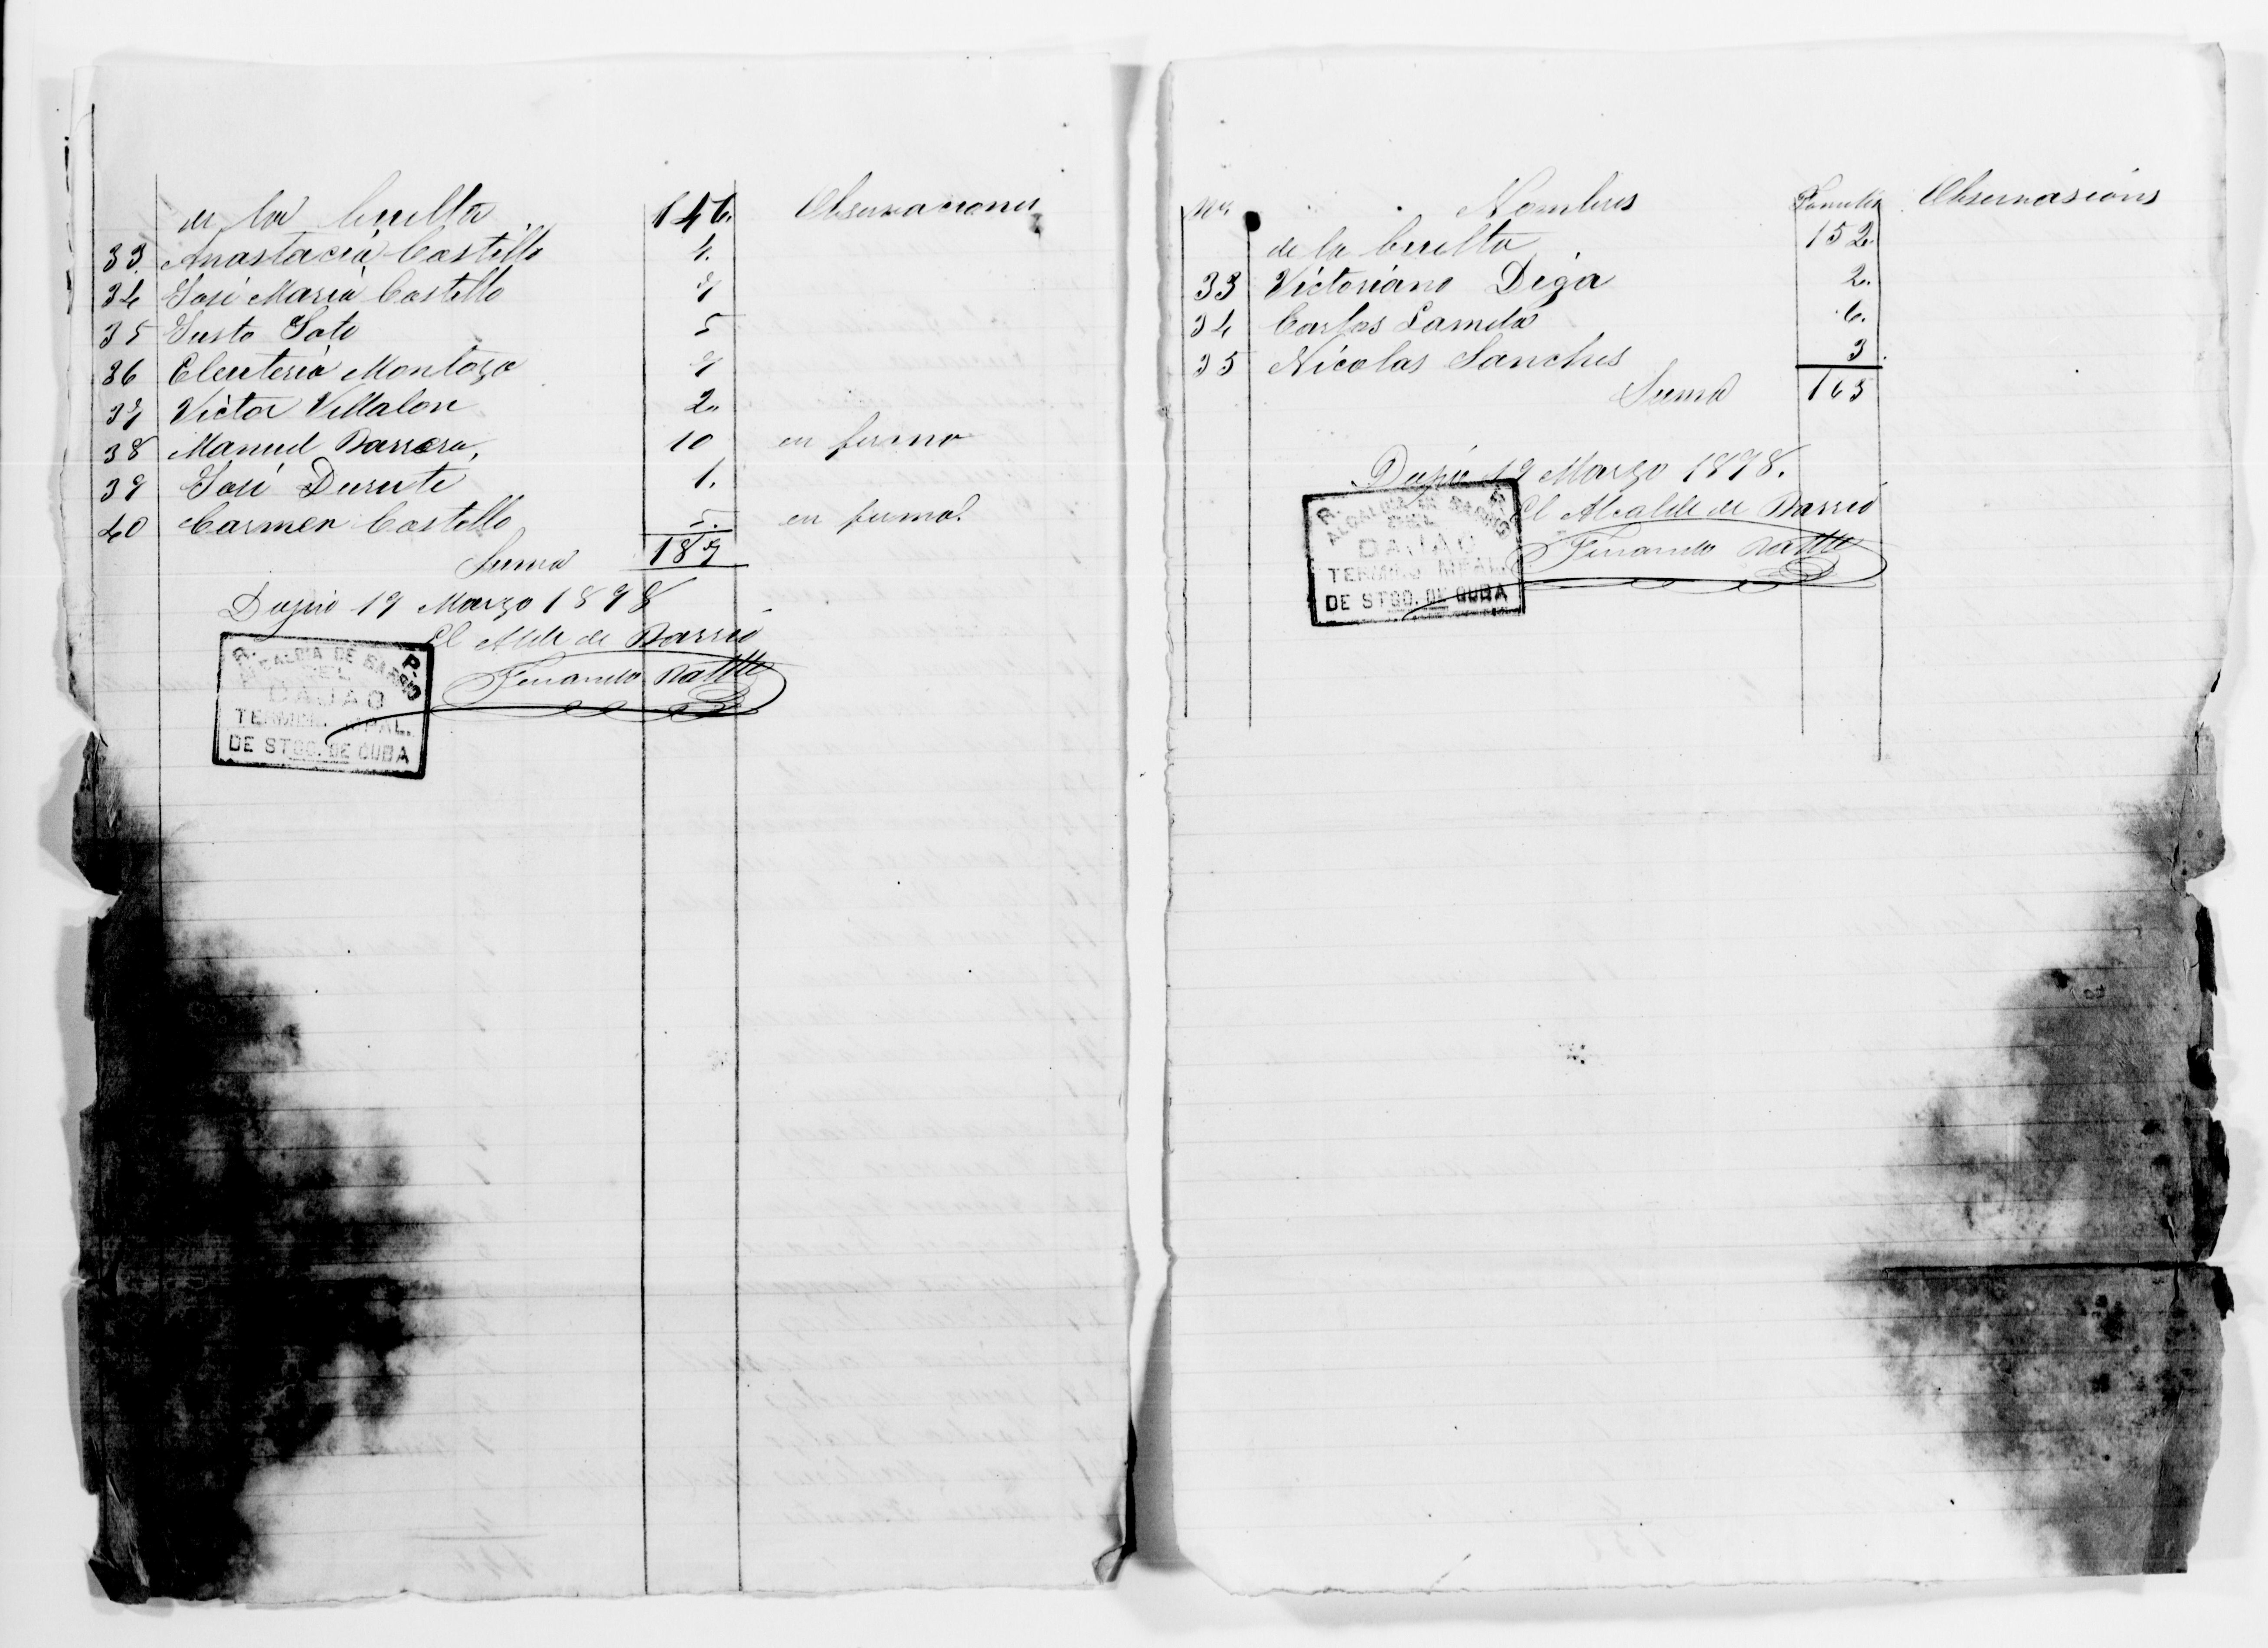 de la buelta 146. Observaciones
33. Anastacia Castillo 4.
34 José Maria Castillo 7
35 Justo Soto 5
36 Eleuteria Montoya 7
37 Victor Villalon 2.
38 Manuel Barrera, 10 en fermo
39 José Durute 1.
40 Carmen Castillo 5. en ferma.
Suma 187
Dajao 19 Marzo 1898
El Alde de Barrio
Fernando Batlle
R. P.
ALCALDIA DE BARRIO
DEL
DAJAO
TERMINO MPAL.
DE STGO. DE CUBA
Nos. Nombres Familia Observasions
de la buelta 152.
33 Victoriano Diga 2.
34 Carlos 6.
35 Nicolas Sanches 3.
Suma 163
Dajao 19 Marzo 1898.
El Alcalde de Barrio
Fernando Batlle
R. P.
ALCALDIA DE BARRIO
DEL
DAJAO
TERMINO MPAL.
DE STGO. DE CUBA